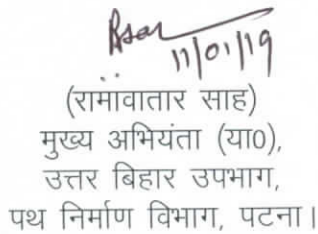 11/01/19
(रामावतार साह)
मुख्य अभियंता (या0),
उत्तर बिहार उपभाग,
पथ निर्माण विभाग, पटना।